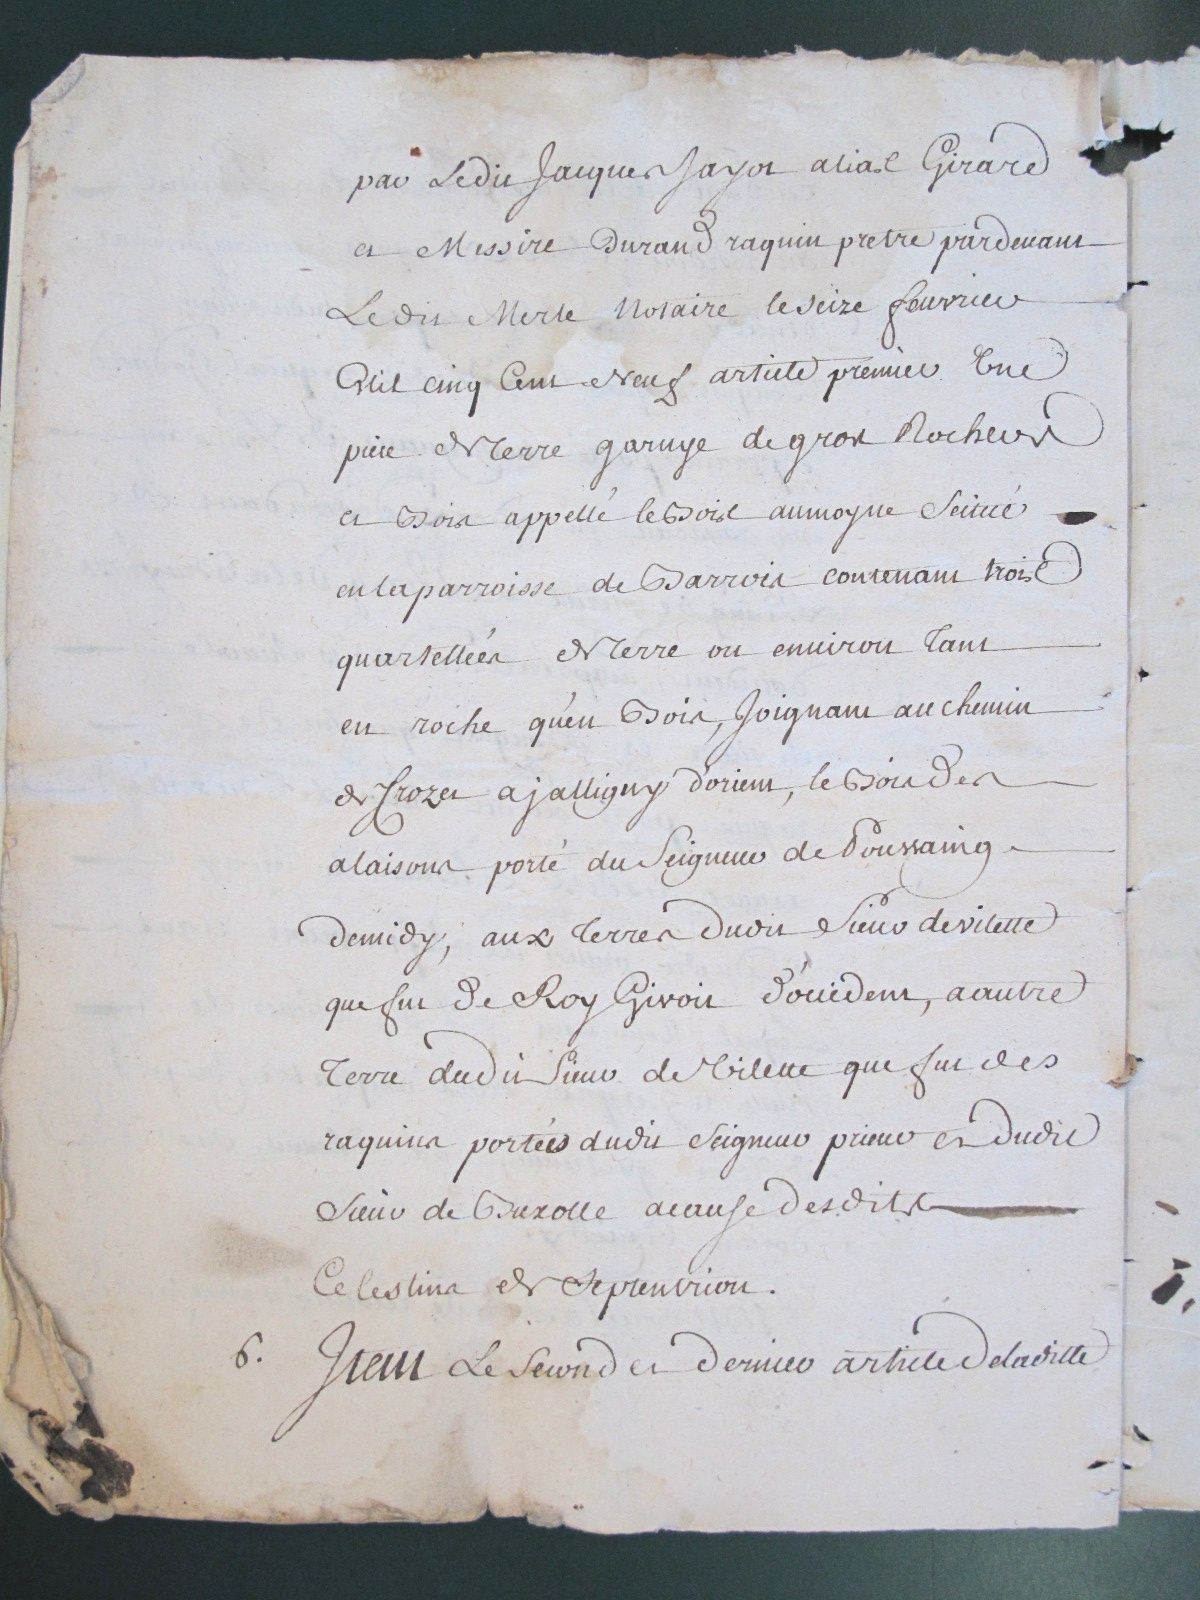 par Ledit Jacques Jayot alias Girard
et Messire Durand raquin pretre pardevant
Ledit Merle Notaire le seize feuvrier
Mil cinq Cent Neuf article premier Une
piece de Terre garnye de gros Rochers
et Bois appellé le Bois aumoyne Scitué
en la parroisse de Barrois contenant trois
quartellées de Terre ou environ Tant
en roche qu'en Bois, Joignant au chemin
de Crozet a jalligny d'orient, le Bois des
alaisons porté du Seigneur de
demidy, aux Terres dudit Sieur de vilette
que fut de Roy Givoit d'occident, a autre
Terre dudit Sieur de Vilette que fut des
raquins portées dudit Seigneur prieur et Dudit
Sieur de Buxolle a cause Desdits
Celestins de Septentrion.
6. Item Le Second et Dernier article De laditte